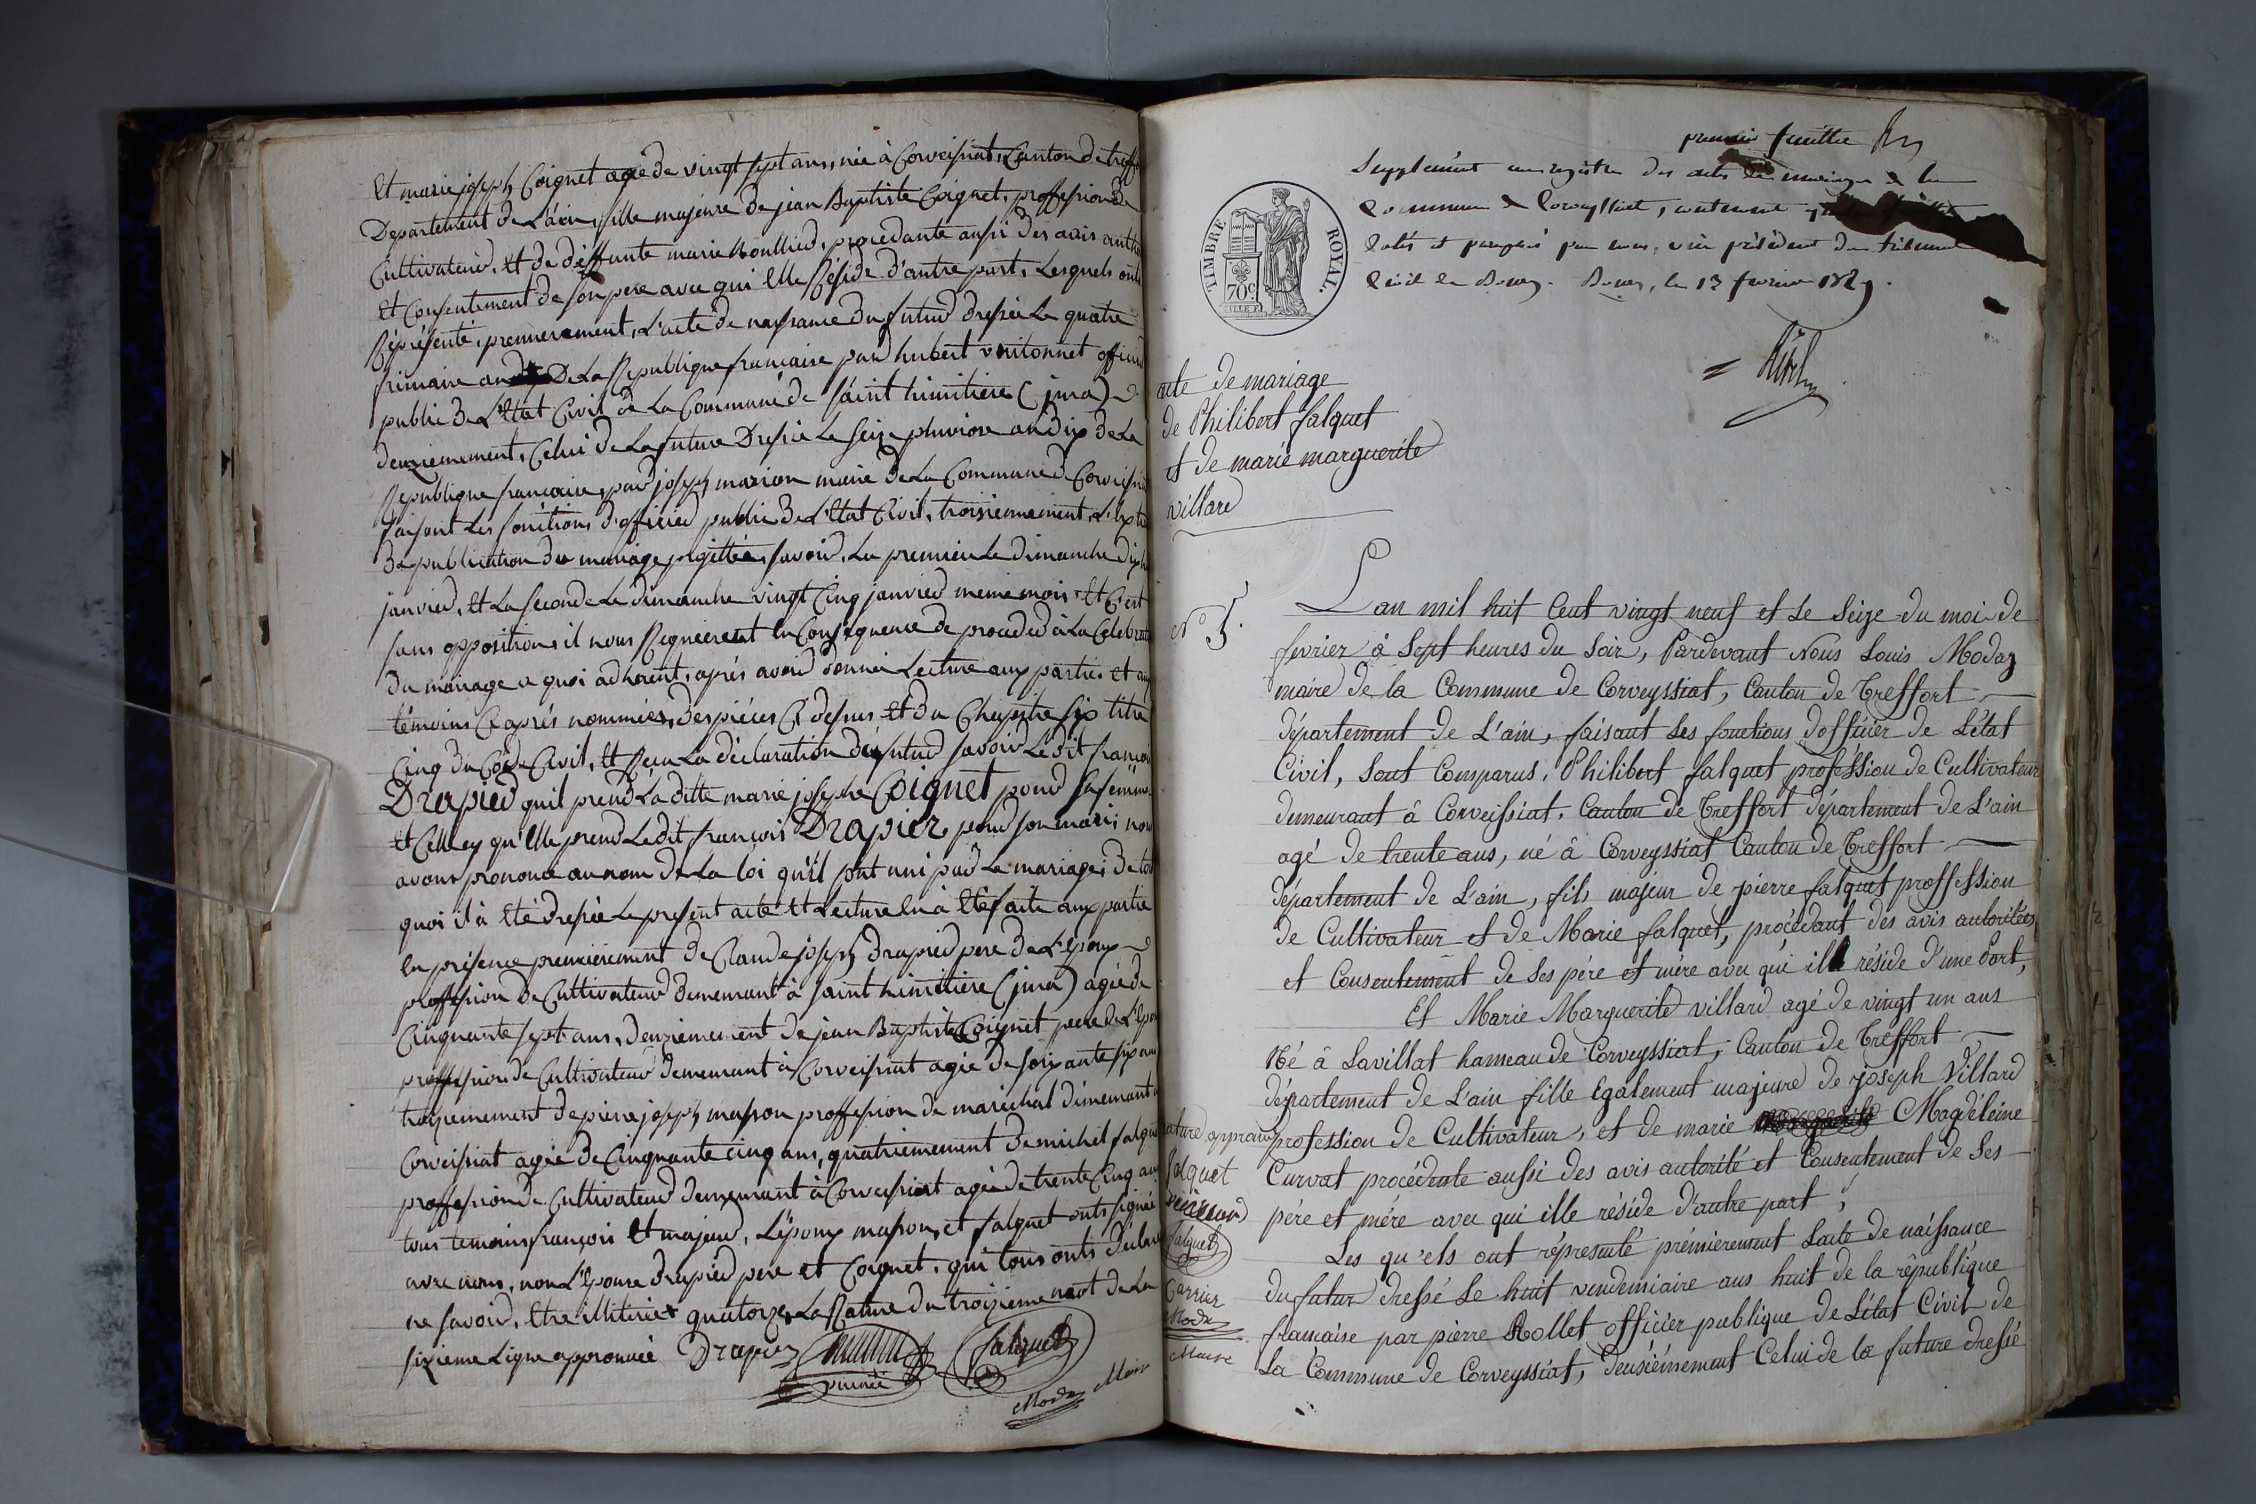 Et marie joseph Coignet agée de vingt sept ans, née à Corveissiat, Canton de treffort
Département de L'ain, fille majeure de jean Baptiste Coignet, proffession de
Cultivateur, et de deffunte marie Moullied, procédante aussi des avis autorité
et Consentement de son pere avec qui elle Réside d'autre part, Lesquels onts
Réprésenté, premierement, L'acte de naissance du futur dressée Le quatre
frimaire an De La République française par hubert vuitonnet officier
public De L'Etat Civil de La Commune de Saint himitiere (jura)
deuxiemement, Celui de La future Dressée Le Seize pluviose an dix de La
République française, par joseph marion maire de La Commune de Corveissiat
faisant Les fonctions d'officier public De L'Etat Civil, troisiemement, L'Extrait
De publication du mariage projettée, savoir, La premiere Le dimanche dix huit
janvier, et La seconde Le dimanche vingt Cinq janvier meme mois, et C'est
sans oppositions il nous Requierent en Conséquence de proceder à La Celebration
du mariage a quoi adherent, après avoir donnée Lecture aux parties et aux
témoins Ci après nommées, des pièces Ci dessus et du Chapitre six titre
Cinq du Code Civil, et Reçu La déclaration des futurs savoir Le dit françois
Drapied qu'il prend La ditte marie josephe Coignet pour sa femme
et Celle cy qu'Elle prend Le dit françois Drapier pour son mari, nous
avons prononcé au nom de La loi qu'il sont uni par Le mariage, de tout
quoi il à Eté dressée Le present acte et Lecture en à Eté faite aux parties
En présence premièrement de Claude joseph drapied pere de L'Epoux
proffession de Cultivateur demeurant à Saint himitiere (jura) agée de
Cinquante sept ans, deuxiemement de jean Baptiste Coignet pere de L'Epouse
proffession de Cultivateur demeurant à Corveissiat agée de soixante six ans
troisiemement de pierre joseph masson proffession de maréchal demeurant à
Corveissiat agée de Cinquante cinq ans, quatriemement de michel falquet
proffession de Cultivateur demeurant à Corveissiat agée de trente Cinq ans
tous temoins françois et majeur, L'époux masson et falquet onts signé
avec nous, non L'épouse drapied pere et Coignet, qui tous onts déclaré
ne savoir, Etre illiteriés quatorze, La Rature du troizieme mot de La
sixieme Ligne approuvée Drapier falquet
Modas Maire
premier feuillet
Supplément au registre des actes de mariage de la
Commune de Corveyssiat, contenant
Cotés et paraphé par nous, vice président du tribunal
Civil de Bourg. Bourg, le 13 fevrier 1829.
TIMBRE ROYAL.
70c
acte de mariage
de Philibert falquet
et de marie marguerite
villard
No 5.
L'an mil huit Cent vingt neuf et le Seize du moi de
fevrier à Sept heures du Soir, Pardevant Nous Louis Modas
maire de la Commune de Corveyssiat, Canton de Treffort
département de L'ain, faisant les fonctions d'officier de L'état
Civil, Sont Comparus, Philibert falquet proféssion de Cultivateur
demeurant à Corveissiat, Canton de Treffort département de L'ain
agé de trente ans, né à Corveyssiat Canton de Treffort
département de L'ain, fils majeur de pierre falquet proffession
de Cultivateur et de Marie falquet, procédant des avis autorités
et Consentement de Ses pére et mére avec qui il réside d'une Part,
Et Marie Marguerite villard agé de vingt un ans
Né à Lavillat hameau de Corveyssiat, Canton de Treffort
département de L'ain fille également majeure de joseph Villard
profession de Cultivateur, et de marie Magdéleine
Curvat procédente aussi des avis autorité et Consentement de Ses
pére et mére avec qui ille réside d'autre part,
Les qu'els ont répresenté prémierement Lacte de naissance
du futur dressé Le huit vendemiaire ans huit de la république
française par pierre Rollet officier publique de L'état Civil de
La Commune de Corveyssiat, deusiémement Celui de la future dressé
rature approuvé
falquet
falquet
Carrier
Modas
Maire